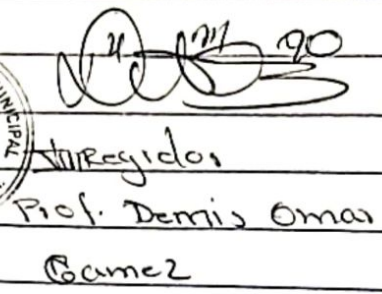 UNICIPAL
Regidor
Prof. Demis Omar
Gamez